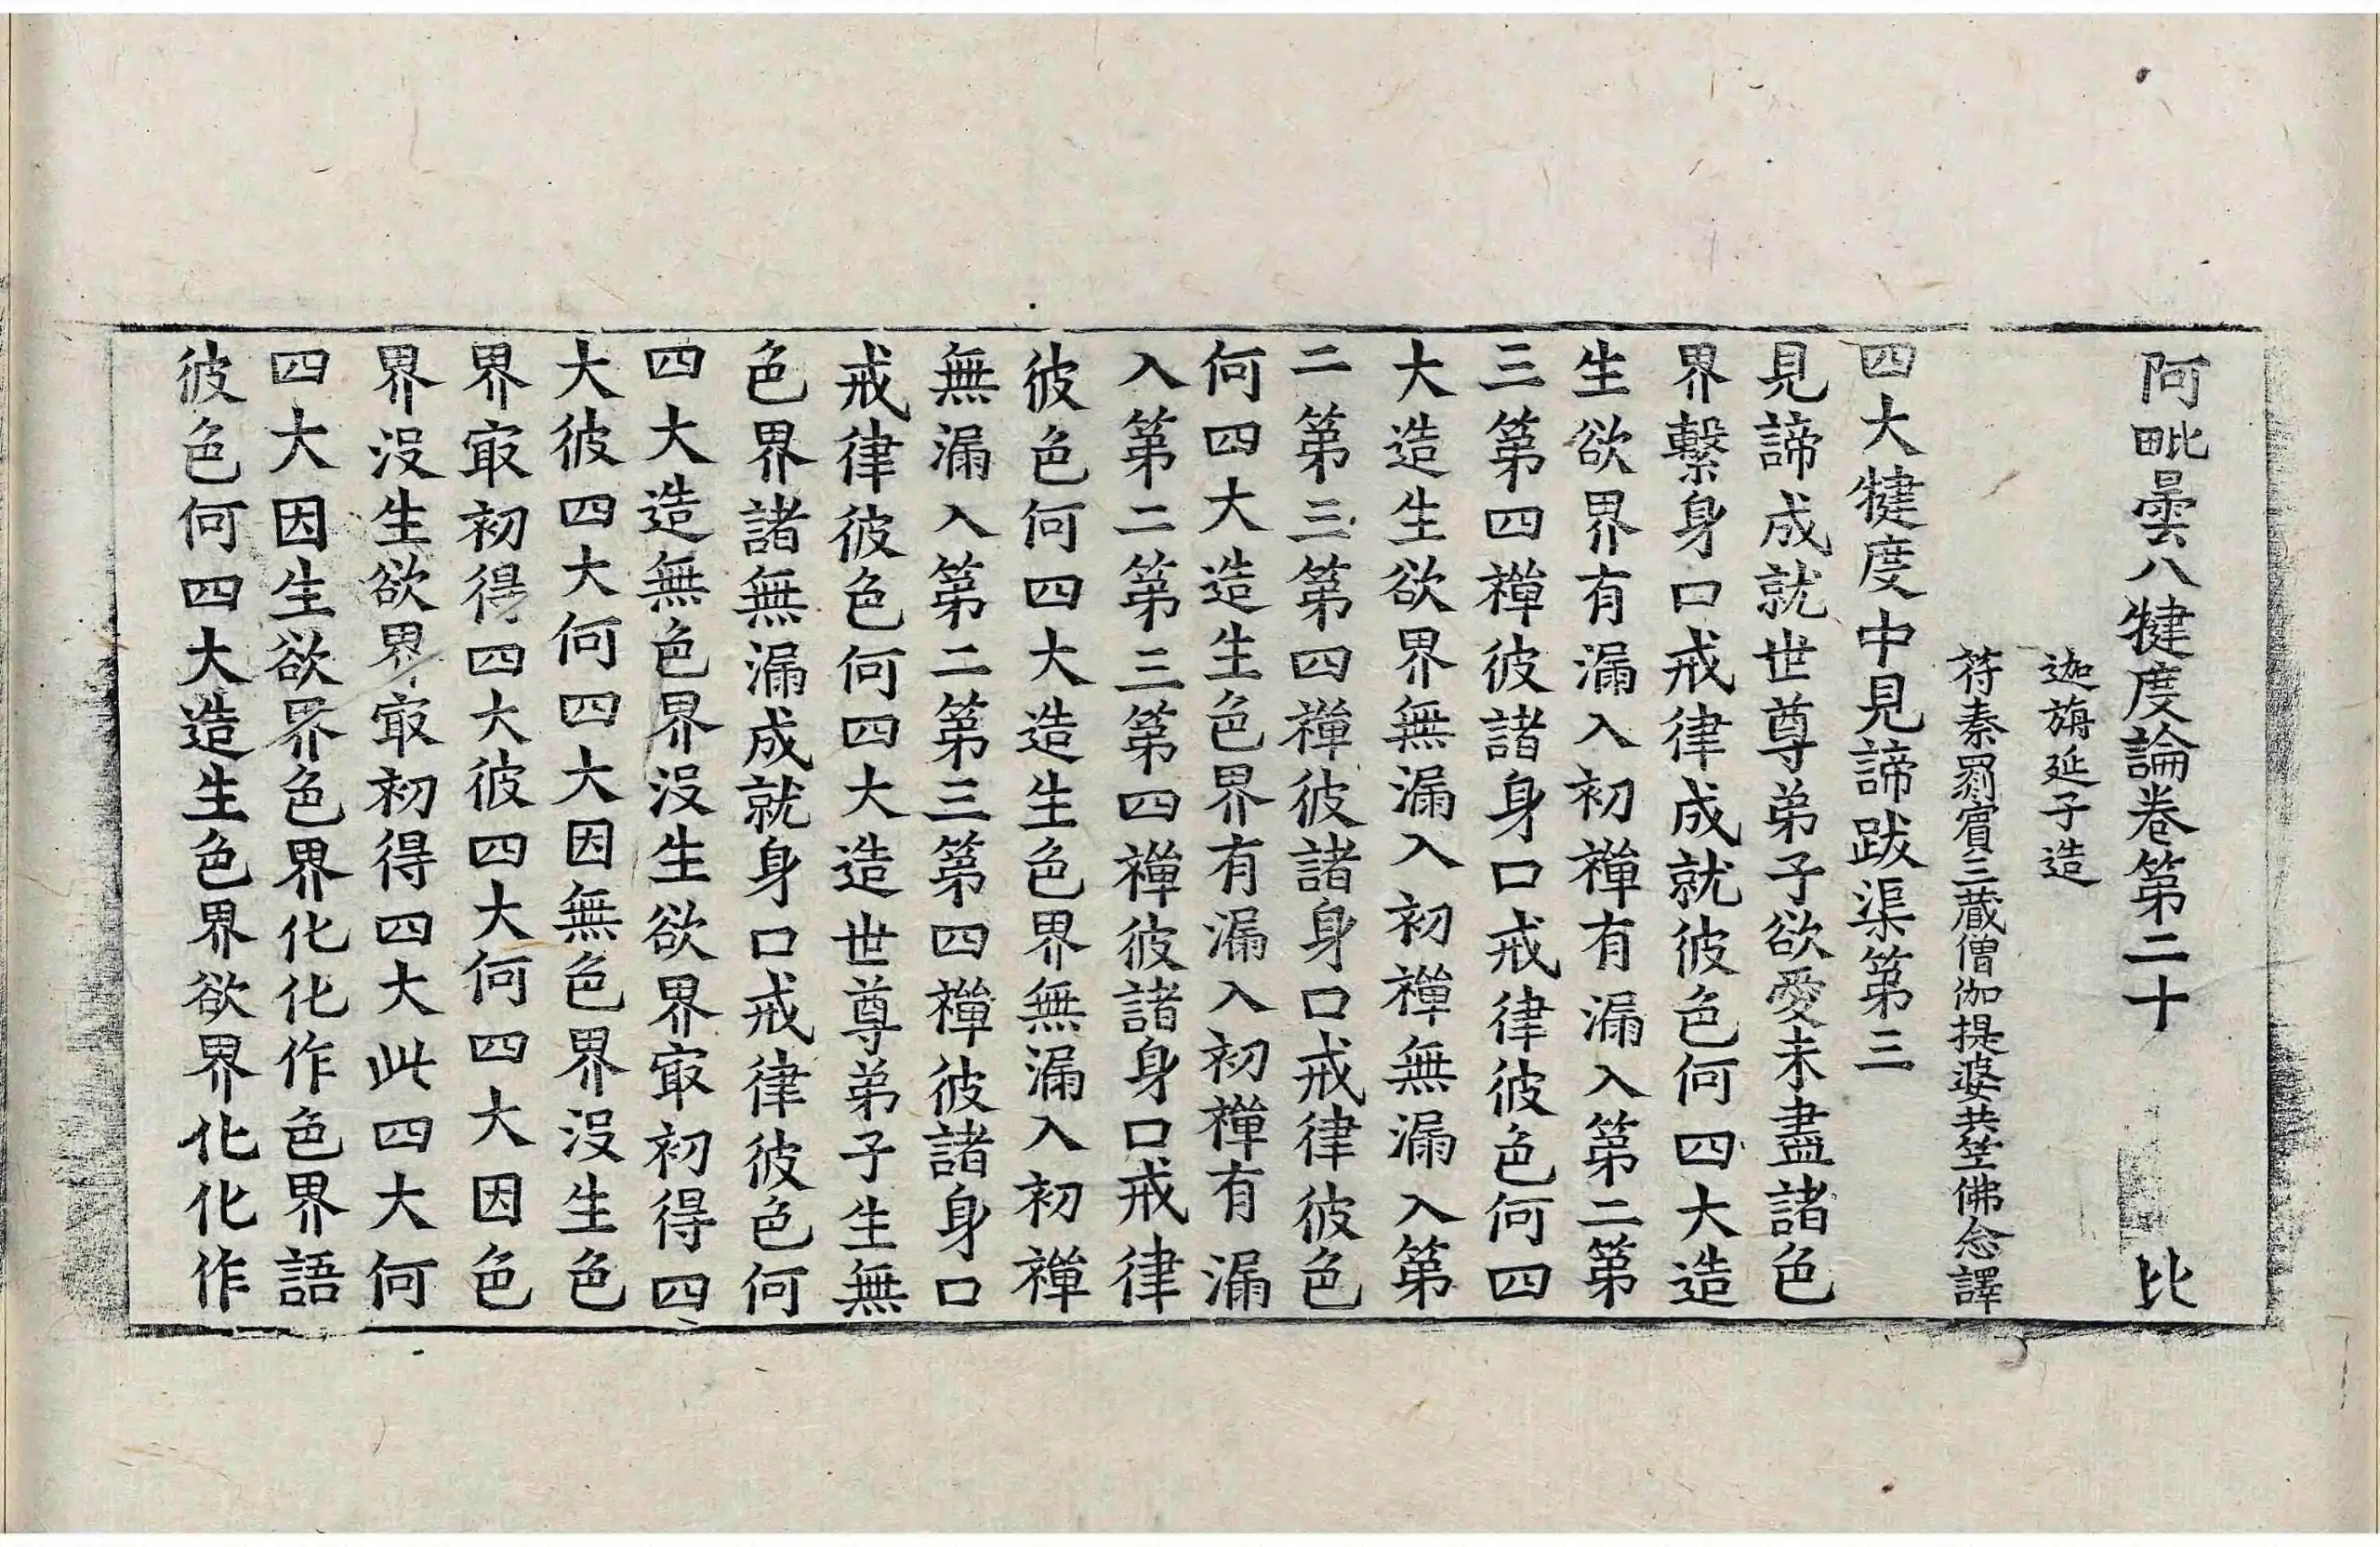 阿毗曇八犍度論卷第二十 比
迦旃延子造
苻秦罽賓三藏僧伽提婆共竺佛念譯
四大犍度中見諦跋渠第三
見諦成就世尊弟子欲愛未盡諸色
界繫身口戒律成就彼色何四大造
生欲界有漏入初禪有漏入第二第
三第四禪彼諸身口戒律彼色何四
大造生欲界無漏入初禪無漏入第
二第三第四禪彼諸身口戒律彼色
何四大造生色界有漏入初禪有漏
入第二第三第四禪彼諸身口戒律
彼色何四大造生色界無漏入初禪
無漏入第二第三第四禪彼諸身口
戒律彼色何四大造世尊弟子生無
色界諸無漏成就身口戒律彼色何
四大造無色界沒生欲界冣初得四
大彼四大何四大因無色界沒生色
界冣初得四大彼四大何四大因色
界沒生欲界冣初得四大此四大何
四大因生欲界色界化化作色界語
彼色何四大造生色界欲界化化作